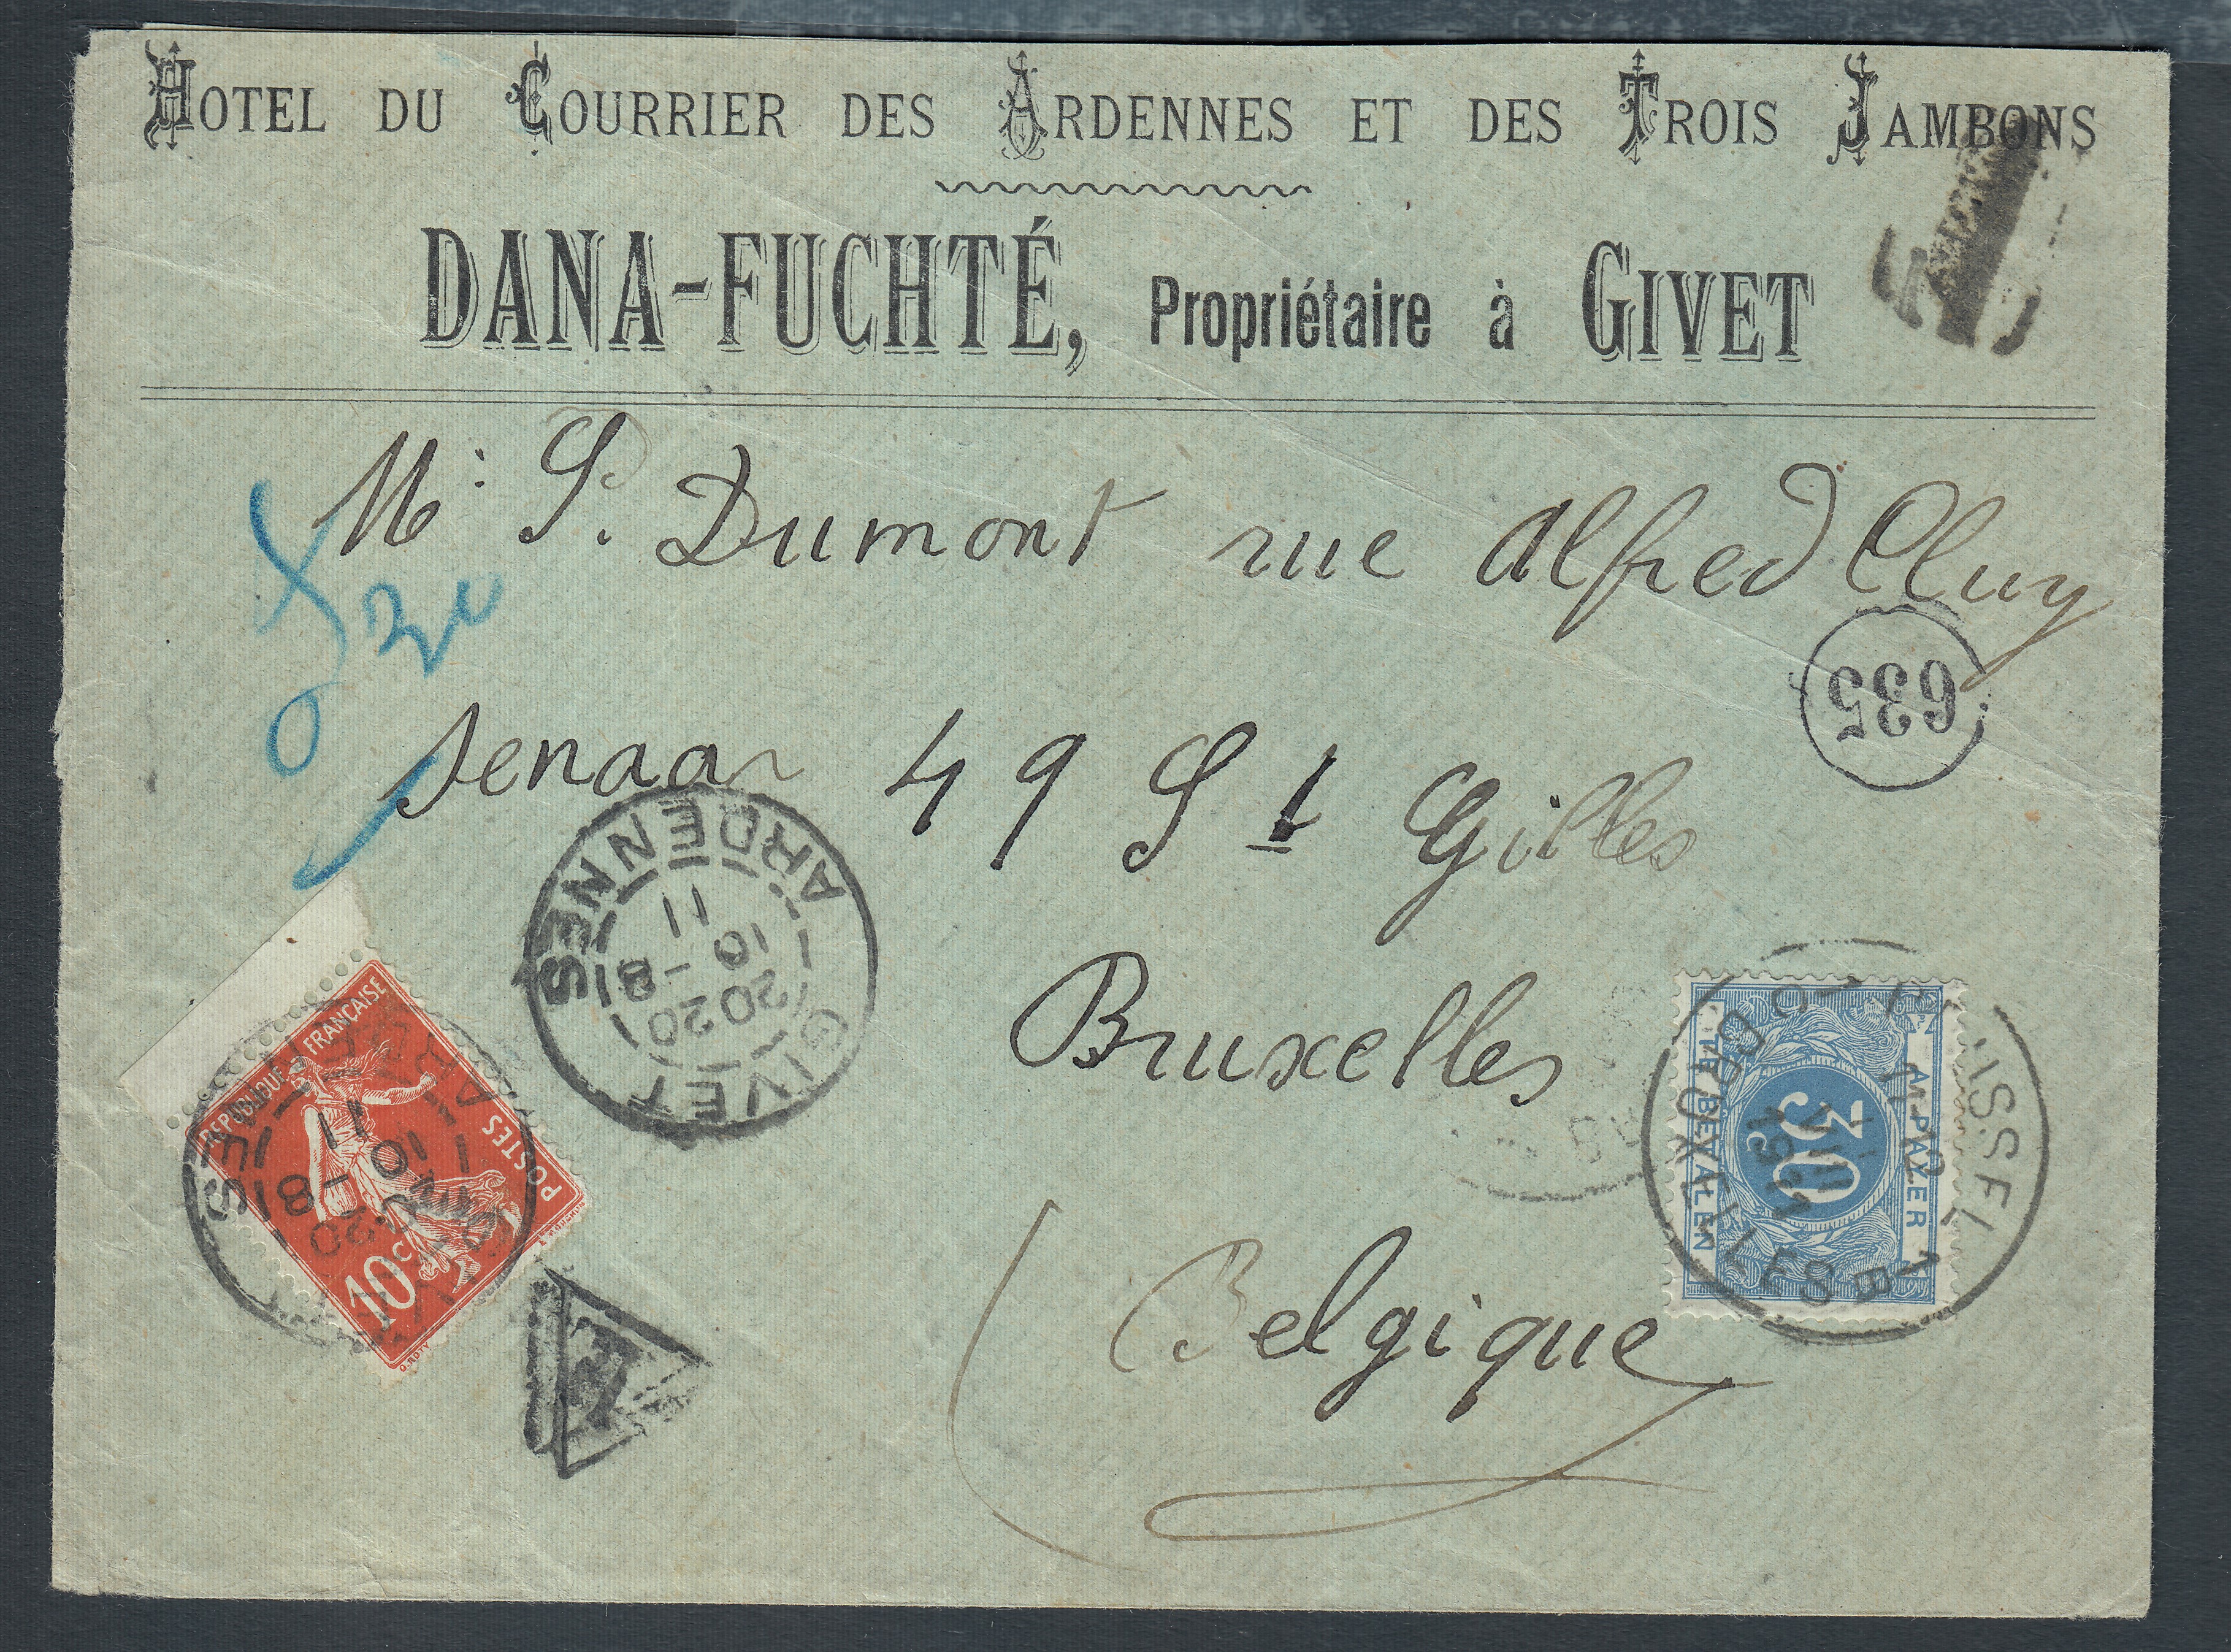 HOTEL DU COURRIER DES ARDENNES ET DES TROIS JAMBONS
DANA-FUCHTÉ, Propriétaire à GIVET
Mr S. Dumont rue Alfred Cluy
30
635
senaar 49 St Gilles
GIVET
20 20
10 - 8
11
ARDENNES
Bruxelles
REPUBLIQUE FRANÇAISE
POSTES
10c
O. ROTY
E. MOUCHON
20
10 - 8
11
T
A PAYER
30
TE BETALEN
BRUXELLES
VIII
1911
Belgique